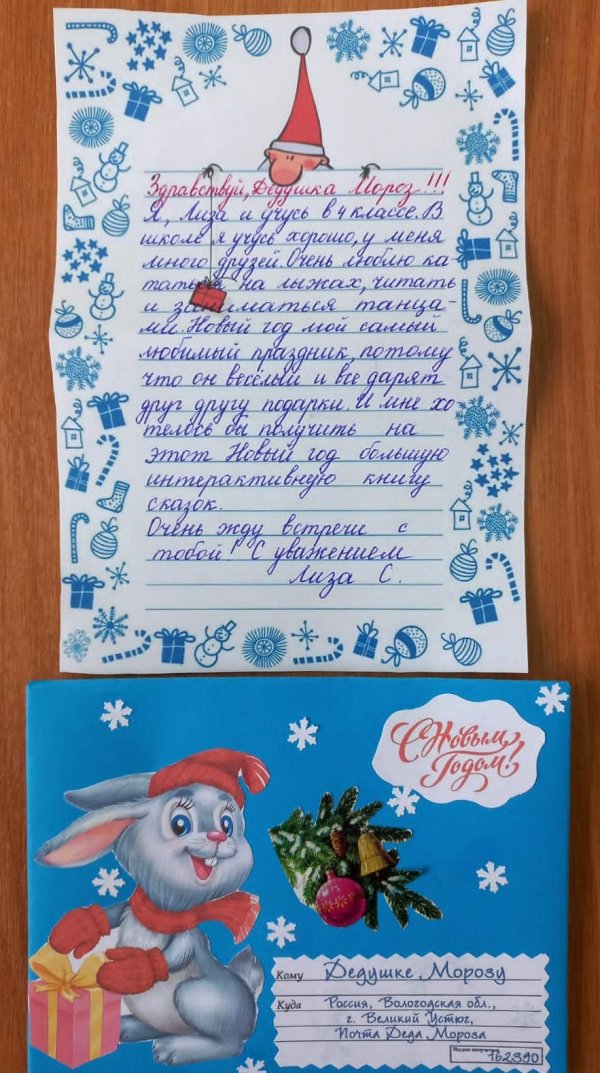 Здравствуй, Дедушка Мороз!!!
Я, Лиза и учусь в 4 классе. В
школе я учусь хорошо, у меня
много друзей. Очень люблю ка-
таться на лыжах, читать
и заниматься танца-
ми. Новый год мой самый
любимый праздник, потому
что он весёлый и все дарят
друг другу подарки. И мне хо
телось бы получить на
этот Новый год большую
интерактивную книгу
сказок.
Очень жду встречи с
тобой! С уважением
Лиза С.
С Новым
Годом!
Кому Дедушке Морозу
Куда Россия, Вологодская обл.,
г. Великий Устюг,
Почта Деда Мороза
162390